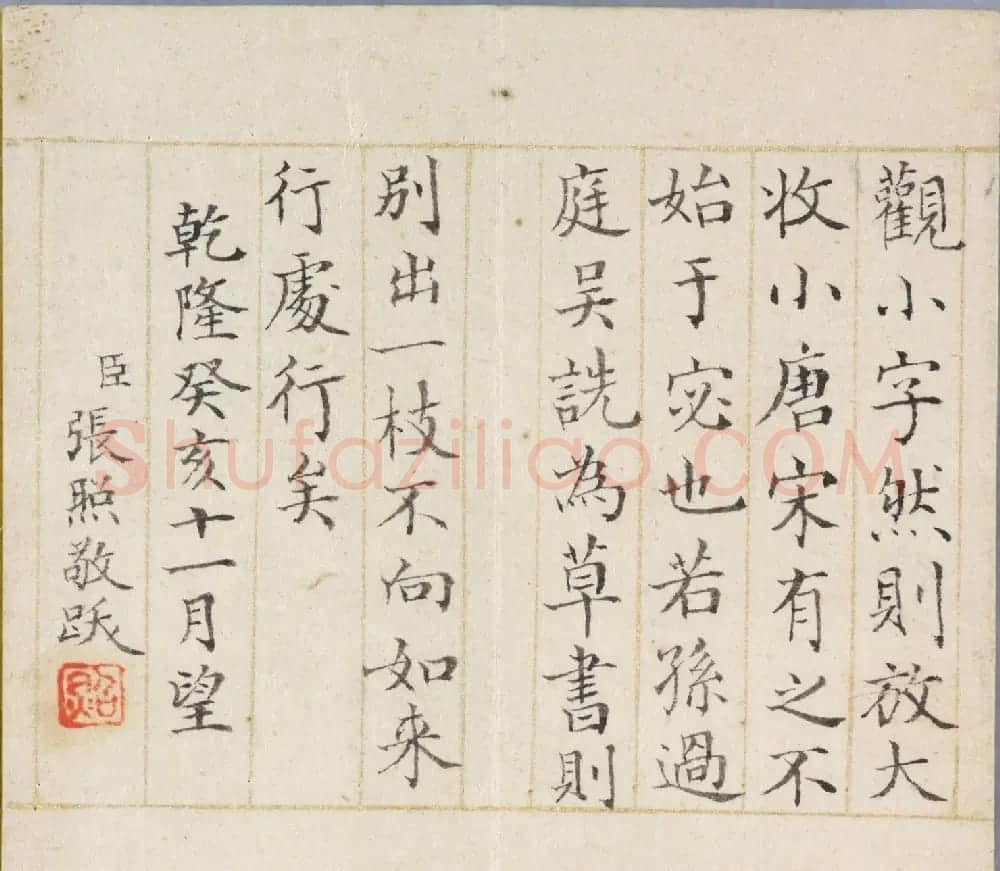 觀小字然則放大
收小唐宋有之不
始于宓也若孫過
庭吴説為草書則
別出一枝不向如来
行處行矣
乾隆癸亥十一月望
臣張照敬跋
照
Shufaziliao.COM